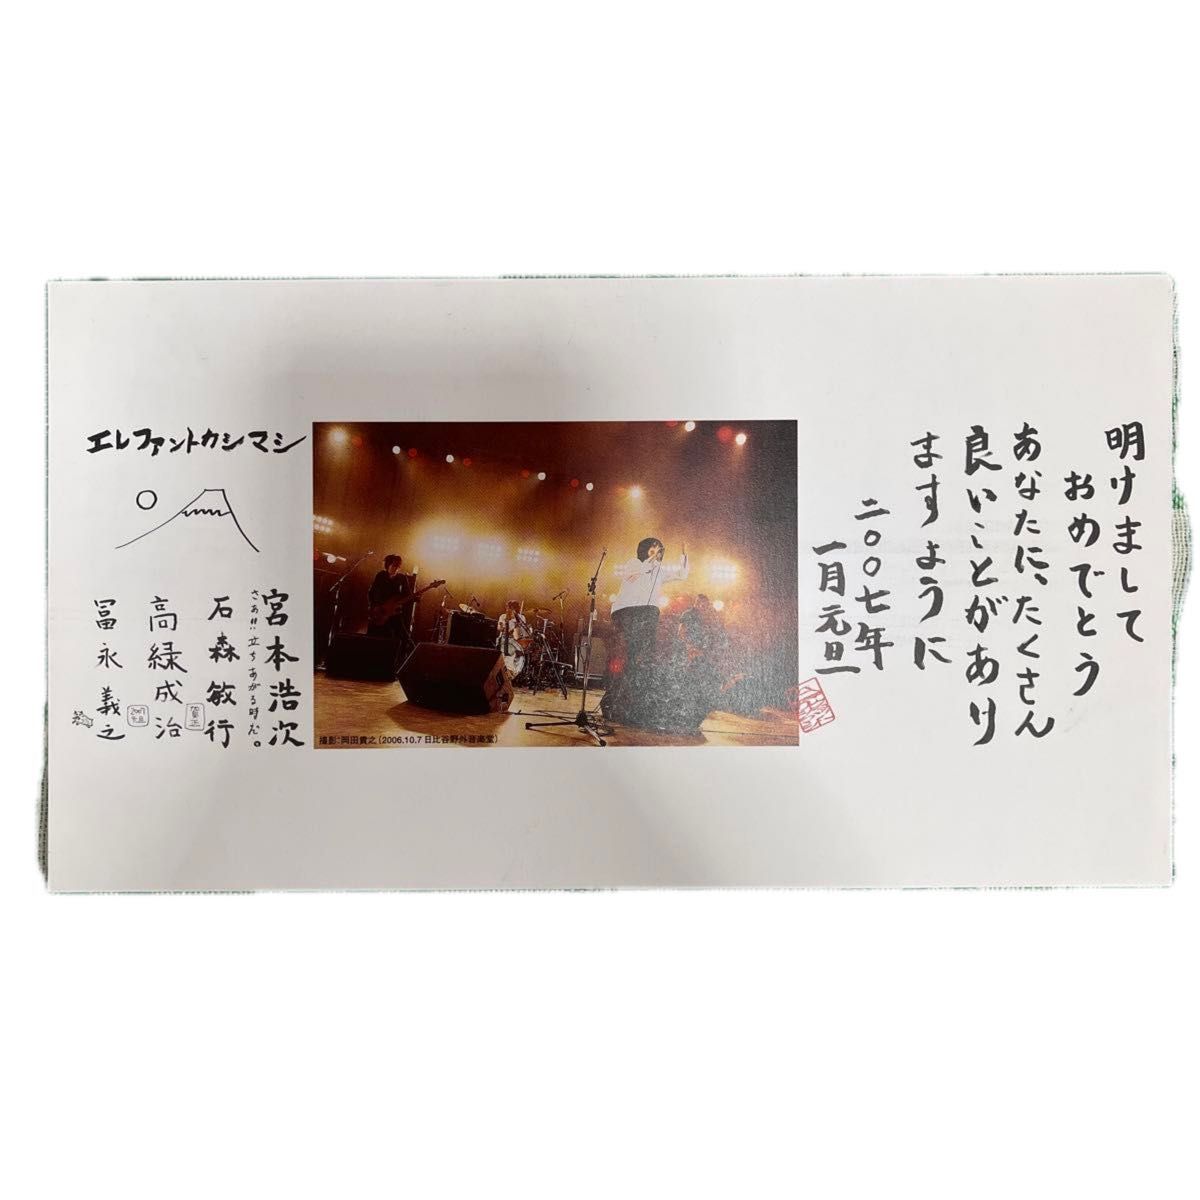 明けまして
おめでとう
あなたに、たくさん
良いことがあり
ますように
二〇〇七年
一月元旦
撮影：岡田貴之（2006.10.7 日比谷野外音楽堂）
エレファントカシマシ
宮本浩次
さぁ!!立ちあがる時だ。
石森敏行
賀正
高緑成治
2007
元旦
冨永義之